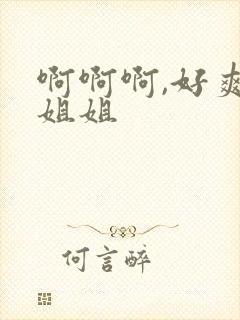 啊啊啊,好爽
姐姐
何言醉